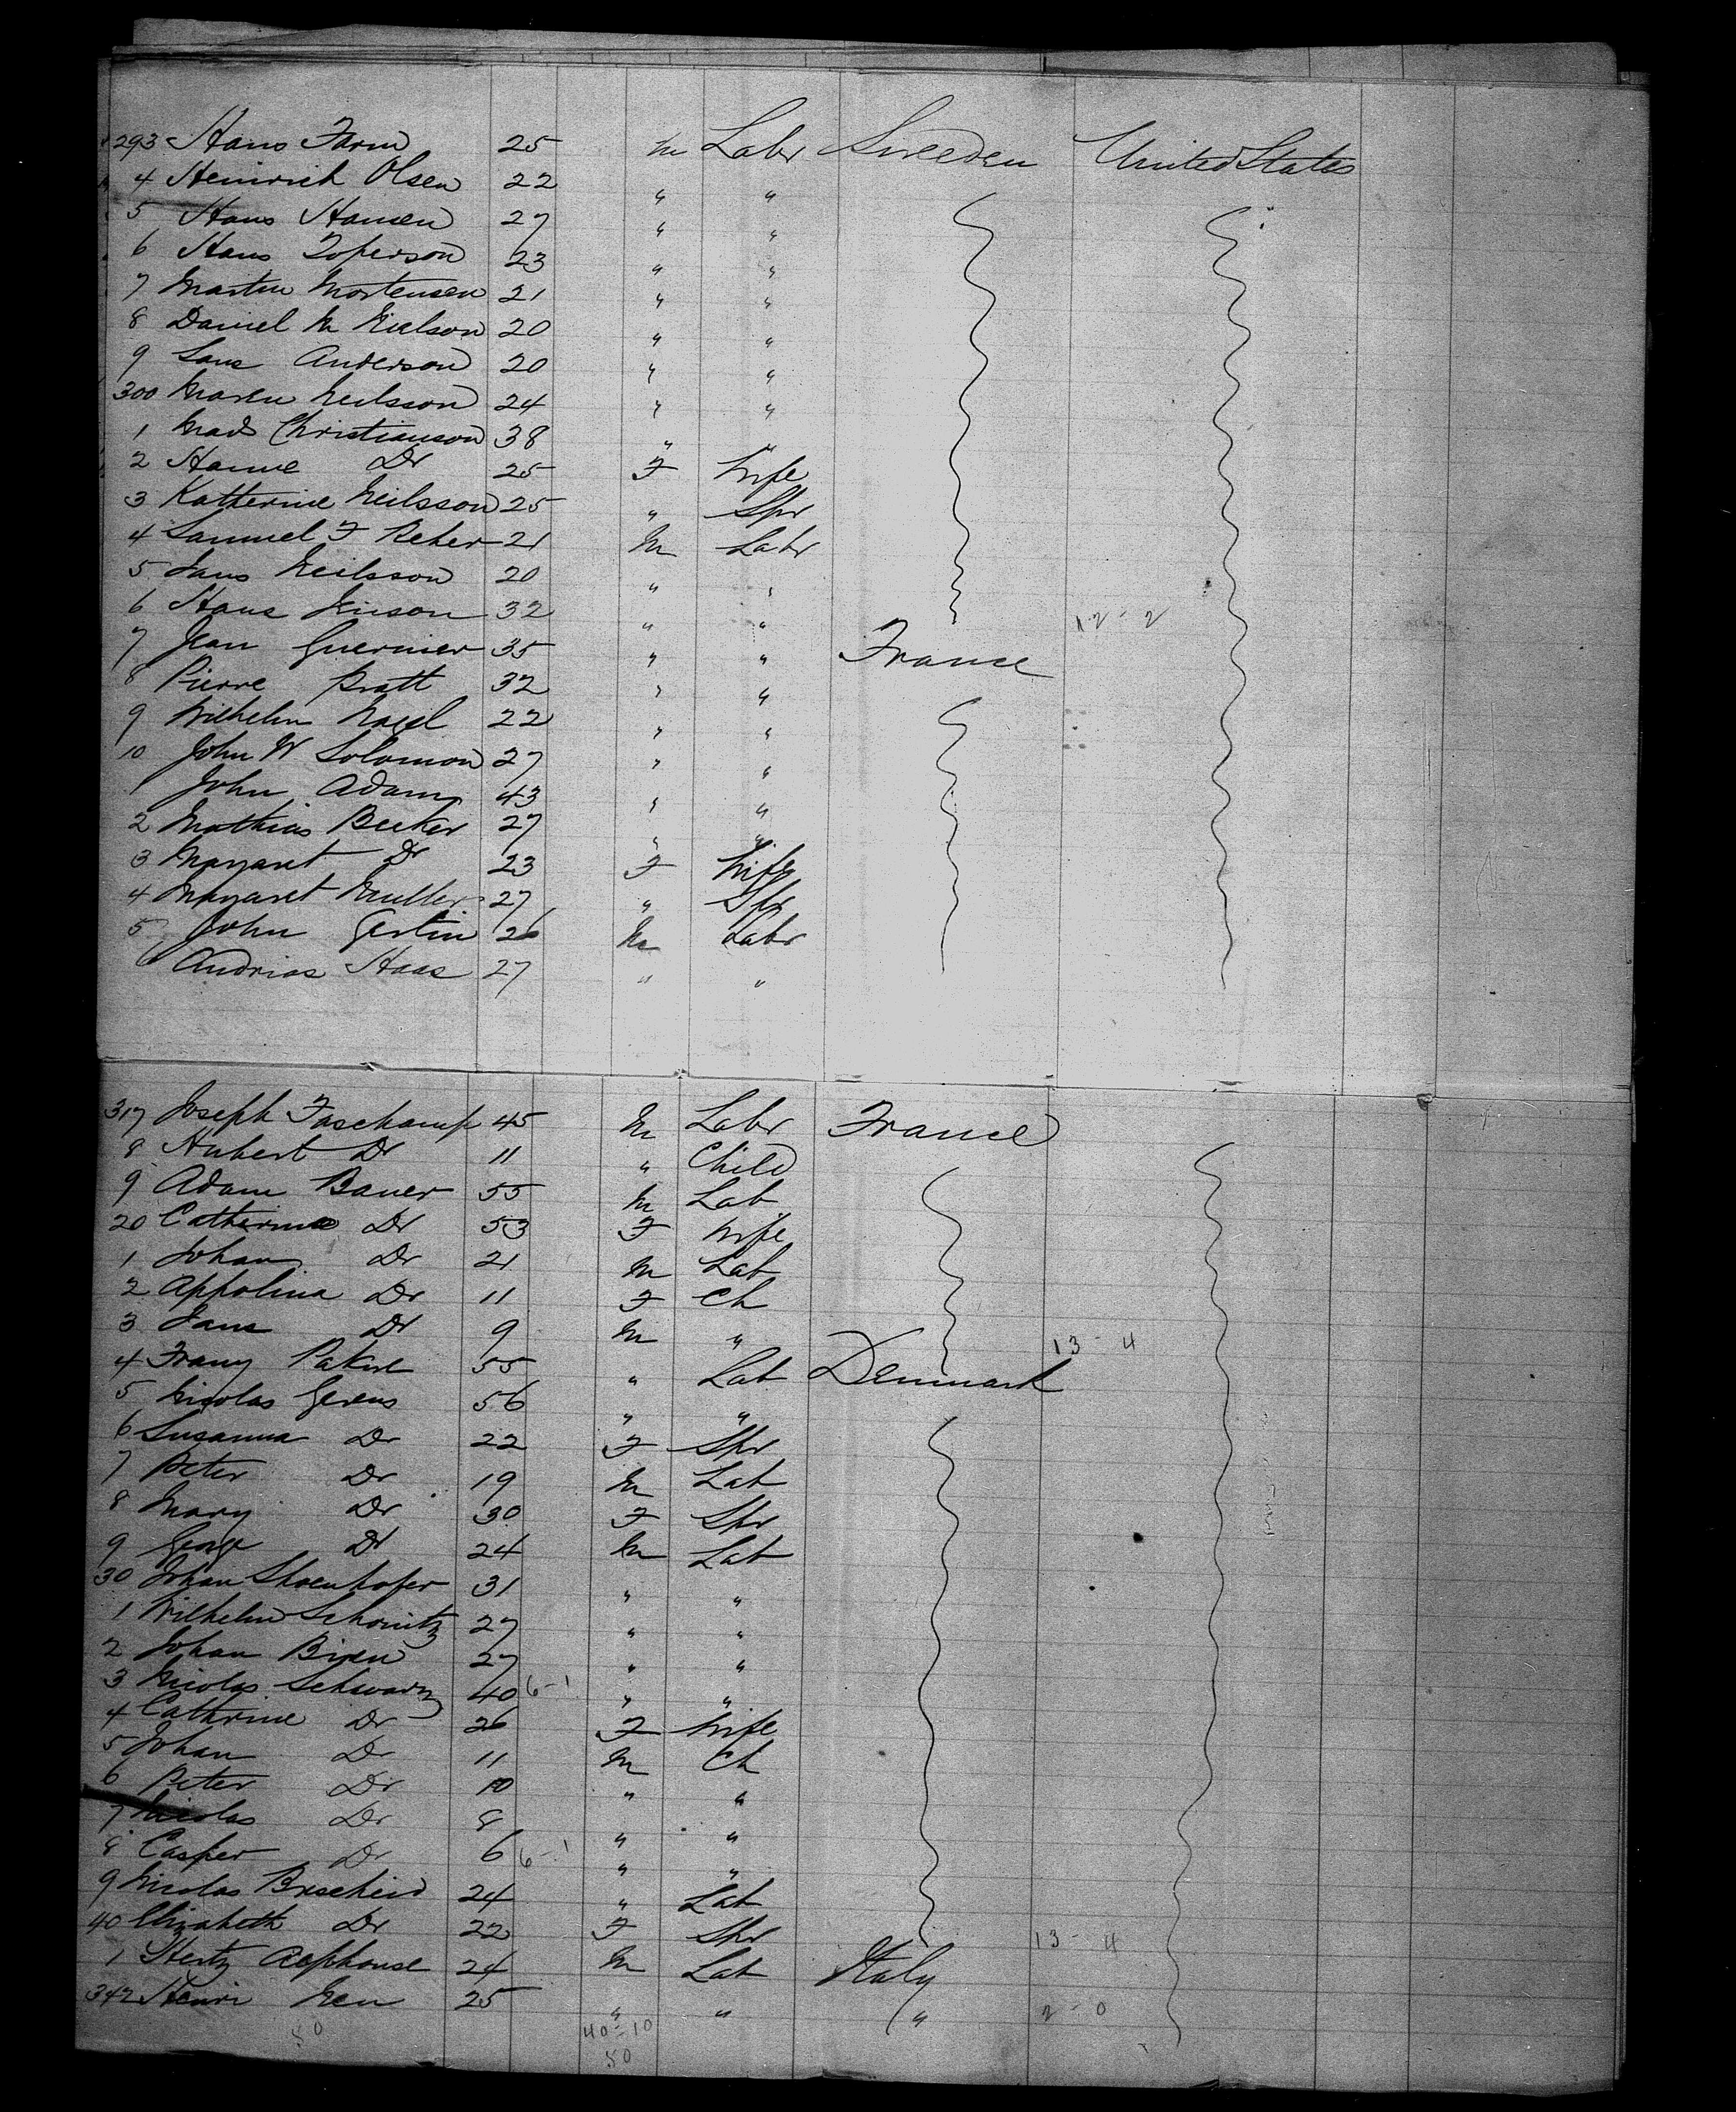 293 Hans Farm 25 m Labr Sweeden United States
4 Heinrich Olsen 22 " "
5 Hans Hansen 27 " "
6 Hans Toperson 23 " "
7 Martin Mortensen 21 " "
8 Daniel M Nielson 20 " "
9 Lans Anderson 20 " "
300 Maren Neilsson 24 " "
1 Mads Christianson 38 " "
2 Hanne Do 25 F Wife
3 Katherine Neilsson 25 " Spr
4 Samuel F Reher 21 M Labr
5 Jans Neilsson 20 " "
6 Hans Jenson 32 " " 12 - 2
7 Jean Guernier 35 " " France
8 Pierre Pratt 32 " "
9 Wilhelm Nagel 22 " "
10 John W Solomon 27 " "
1 John Adams 43 " "
2 Mathias Becker 27 " "
3 Margaret Do 23 F Wife
4 Margaret Muller 27 " Spr
5 John Gerlin 26 M Labr
6 Andrias Haas 27 " "
317 Joseph Faschamp 45 M Labr France
8 Hubert Do 11 " Child
9 Adam Bauer 55 M Lab
20 Catherina Do 53 F Wife
1 Johan Do 21 M Lab
2 Appolina Do 11 F Ch
3 Jans Do 9 M " 13 - 4
4 Franz 55 " Lab Denmark
5 Nicolas Gerens 56 " "
6 Susanna Do 22 F Spr
7 Peter Do 19 M Lab
8 Mary Do 30 F Spr
9 George Do 24 M Lab
30 Johan Shoenhofer 31 " "
1 Wilhelm Schmitz 27 " "
2 Johan 27 " "
3 Nicolas Schwarz 40 6-1 " "
4 Cathrine Do 26 F Wife
5 Johan Do 11 M Ch
6 Peter Do 10 " "
7 Nicolas Do 8 " "
8 Casper Do 6 6-1 " "
9 Nicolas Brscheid 24 " Lab
40 Elizabeth Do 22 F Spr 13 - 4
1 Hertz Alphonse 24 M Lab Italy
342 Henri Ney 25 " " " 2 - 0
50 40-10
50